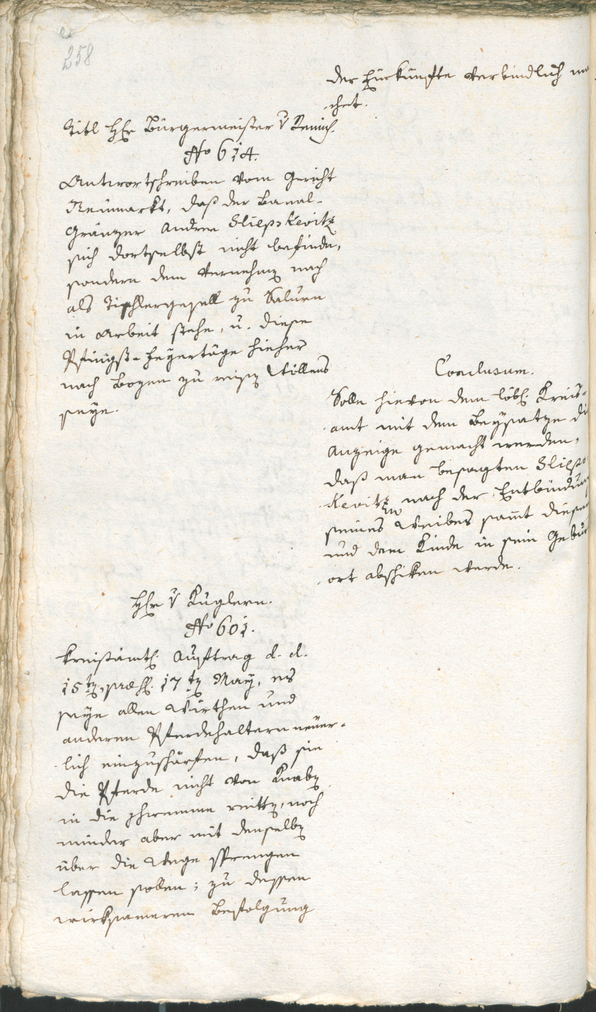 258
der Zurkunfte verbindlich ma
chet.
Titl Hr Bürgermeister v
No 614.
Antwortschreiben vom Gericht
Neumarkt, daß der Banal-
Gränzer Andrea Sliepzkevitz
sich dortselbst nicht befinde,
sondern dem Vernehmen nach
als Tischlergesell zu Salurn
in Arbeit stehe, u. diese
Pfingst-Feyertäge hieher
nach Bozen zu reisen Willens
seye.
Conclusum.
Solle hievon dem löbl. Kreis-
amt mit dem Beysatze die
Anzeige gemacht werden,
daß man besagten Sliepz-
kevitz nach der Entbindung
seines Weibes samt dieser
und dem Kinde in sein Gebur
ort abschiken werde.
Hr v Kuglern.
No 601.
Kreisämtl. Auftrag d. d.
15ten, praes. 17ten May, es
seye allen Wirthen und
anderen Pferdehaltern neuer-
lich einzuschärfen, daß sie
die Pferde nicht von Knaben
in die Schwemme reitten, noch
minder aber mit denselben
über die Wege sprengen
lassen sollen; zu dessen
wirksameren Befolgung